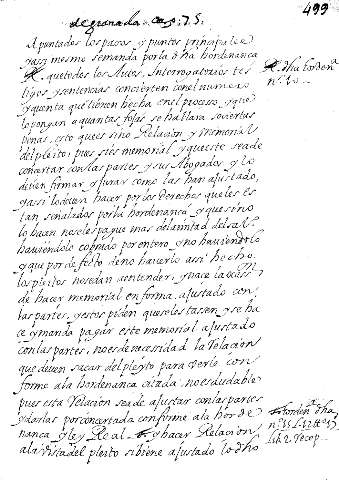 de granada. Cap. 7. §.
499
Apuntados los pasos y puntos principales
y assi mesmo se manda por la dha hordenanca
que todos los Autos, Interrogatorios tes
tigos y sentencias concierten con el numero
y quenta que tienen hecha en el proceso, y que
lo pongan a quantas fojas se hallara so ciertas
penas, esto que es sino Relación, y memorial
del pleito; pues este memorial y que este sea de
concertar con las partes, y sus Abogados y lo
deven firmar, y jurar como las han ajustado,
y assi lo deven hacer por los derechos que les es
tan señalados por la hordenanca, y que si no
lo hacen no se les pague mas de la mitad del sal.
haviendole cobrado por entero, y no haviendolo
y que por defecto de no hacerlo assi hecho,
los pleitos no se dan a entender, y nace la
de hacer memorial en forma, ajustado con
las partes, y estos piden que se les tassen, y se ha
ce y manda pagar este memorial ajustado
con las partes, no es de necessidad la Relación
que deven sacar del pleyto para verlo con
forme a la hordenanca citada, no es dudable
pues esta Relación sea de ajustar con las partes
y darlas por concertada conforme a la horde
nanca y ley Real y hacer Relacion
a la vista del pleito si biene ajustado lo dho
R. dha horden.ª
n.º 10.
horden.ª dha